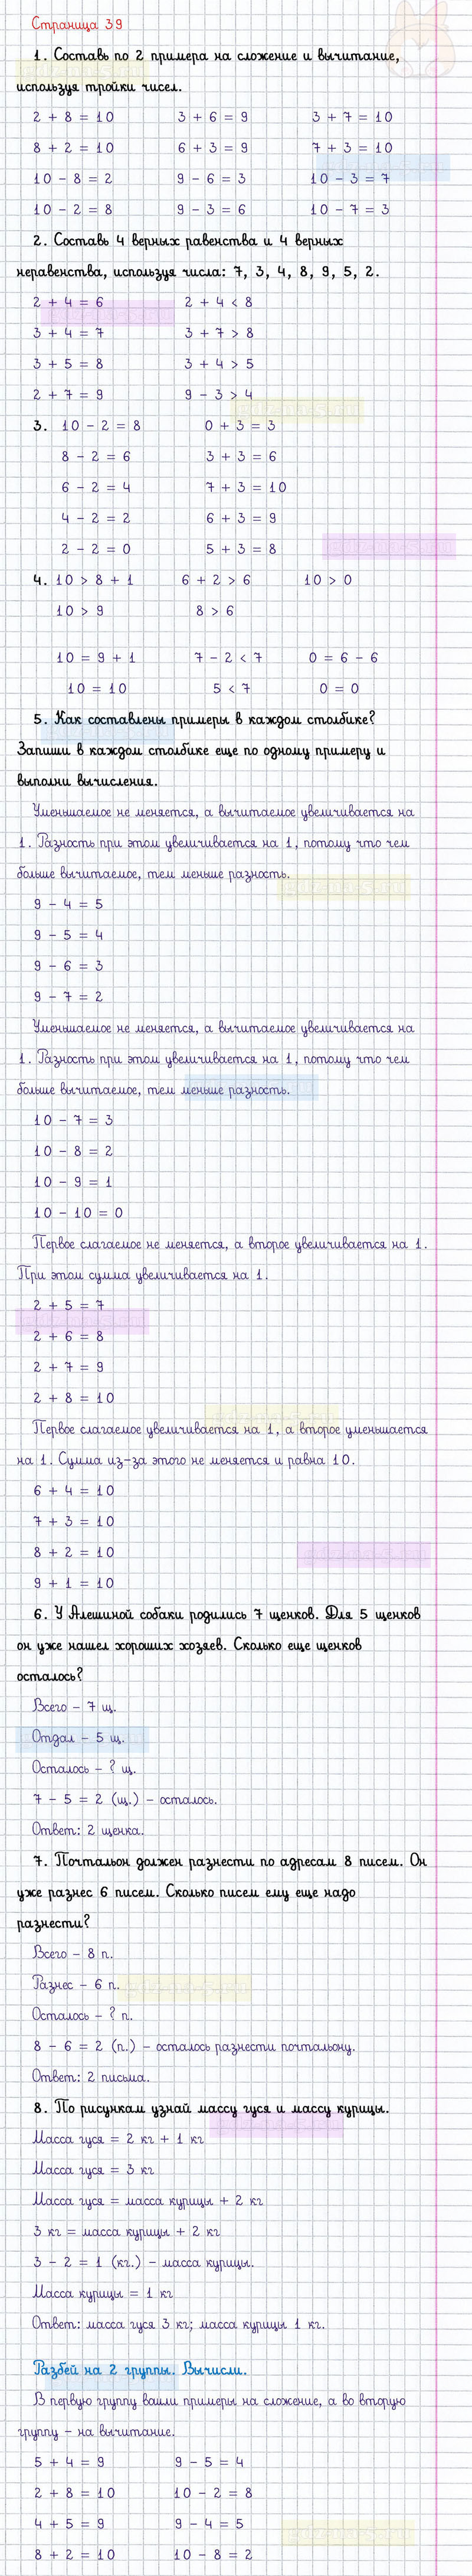 Страница 39
1. Составь по 2 примера на сложение и вычитание,
используя тройки чисел.
2 + 8 = 10 3 + 6 = 9 3 + 7 = 10
8 + 2 = 10 6 + 3 = 9 7 + 3 = 10
10 - 8 = 2 9 - 6 = 3 10 - 3 = 7
10 - 2 = 8 9 - 3 = 6 10 - 7 = 3
2. Составь 4 верных равенства и 4 верных
неравенства, используя числа: 7, 3, 4, 8, 9, 5, 2.
2 + 4 = 6 2 + 4 < 8
3 + 4 = 7 3 + 7 > 8
3 + 5 = 8 3 + 4 > 5
2 + 7 = 9 9 - 3 > 4
3. 10 - 2 = 8 0 + 3 = 3
8 - 2 = 6 3 + 3 = 6
6 - 2 = 4 7 + 3 = 10
4 - 2 = 2 6 + 3 = 9
2 - 2 = 0 5 + 3 = 8
4. 10 > 8 + 1 6 + 2 > 6 10 > 0
10 > 9 8 > 6
10 = 9 + 1 7 - 2 < 7 0 = 6 - 6
10 = 10 5 < 7 0 = 0
5. Как составлены примеры в каждом столбике?
Запиши в каждом столбике еще по одному примеру и
выполни вычисления.
Уменьшаемое не меняется, а вычитаемое увеличивается на
1. Разность при этом увеличивается на 1, потому что чем
больше вычитаемое, тем меньше разность.
9 - 4 = 5
9 - 5 = 4
9 - 6 = 3
9 - 7 = 2
Уменьшаемое не меняется, а вычитаемое увеличивается на
1. Разность при этом увеличивается на 1, потому что чем
больше вычитаемое, тем меньше разность.
10 - 7 = 3
10 - 8 = 2
10 - 9 = 1
10 - 10 = 0
Первое слагаемое не меняется, а второе увеличивается на 1.
При этом сумма увеличивается на 1.
2 + 5 = 7
2 + 6 = 8
2 + 7 = 9
2 + 8 = 10
Первое слагаемое увеличивается на 1, а второе уменьшается
на 1. Сумма из-за этого не меняется и равна 10.
6 + 4 = 10
7 + 3 = 10
8 + 2 = 10
9 + 1 = 10
6. У Алешиной собаки родились 7 щенков. Для 5 щенков
он уже нашел хороших хозяев. Сколько еще щенков
осталось?
Всего - 7 щ.
Отдал - 5 щ.
Осталось - ? щ.
7 - 5 = 2 (щ.) - осталось.
Ответ: 2 щенка.
7. Почтальон должен разнести по адресам 8 писем. Он
уже разнес 6 писем. Сколько писем ему еще надо
разнести?
Всего - 8 п.
Разнес - 6 п.
Осталось - ? п.
8 - 6 = 2 (п.) - осталось разнести почтальону.
Ответ: 2 письма.
8. По рисункам узнай массу гуся и массу курицы.
Масса гуся = 2 кг + 1 кг
Масса гуся = 3 кг
Масса гуся = масса курицы + 2 кг
3 кг = масса курицы + 2 кг
3 - 2 = 1 (кг.) - масса курицы.
Масса курицы = 1 кг
Ответ: масса гуся 3 кг; масса курицы 1 кг.
Разбей на 2 группы. Вычисли.
В первую группу вошли примеры на сложение, а во вторую
группу - на вычитание.
5 + 4 = 9 9 - 5 = 4
2 + 8 = 10 10 - 2 = 8
4 + 5 = 9 9 - 4 = 5
8 + 2 = 10 10 - 8 = 2